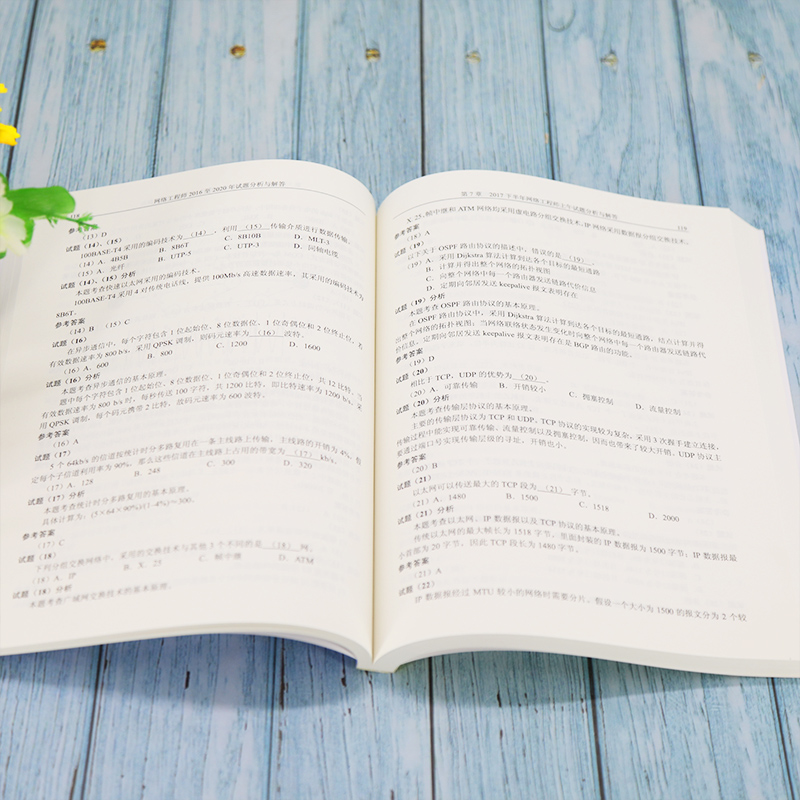 118
网络工程师 2016 至 2020 年试题分析与解答
参考答案
(13) D
试题(14)、(15)
100BASE-T4 采用的编码技术为 (14) ,利用 (15) 传输介质进行数据传输。
(14) A. 4B5B B. 8B6T C. 8B10B D. MLT-3
(15) A. 光纤 B. UTP-5 C. UTP-3 D. 同轴电缆
试题(14)、(15)分析
本题考查快速以太网采用的编码技术。
100BASE-T4 采用 4 对传统电话线,提供 100Mb/s 高速数据速率,其采用的编码技术为
8B6T。
参考答案
(14) B (15) C
试题(16)
在异步通信中,每个字符包含 1 位起始位、8 位数据位、1 位奇偶位和 2 位终止位,若
有效数据速率为 800 b/s,采用 QPSK 调制,则码元速率为 (16) 波特。
(16) A. 600 B. 800 C. 1200 D. 1600
试题(16)分析
本题考查异步通信的基本原理。
题中每个字符包含 1 位起始位、8 位数据位、1 位奇偶位和 2 位终止位,共 12 比特,当
有效数据速率为 800 b/s 时,每秒传送 100 字符,共 1200 比特,即比特速率为 1200 b/s,采
用 QPSK 调制,每个码元携带 2 比特,故码元速率为 600 波特。
参考答案
(16) A
试题(17)
5 个 64kb/s 的信道按统计时分多路复用在一条主线路上传输,主线路的开销为 4%,假
定每个子信道利用率为 90%,那么这些信道在主线路上占用的带宽为 (17) kb/s。
(17) A. 128 B. 248 C. 300 D. 320
试题(17)分析
本题考查统计时分多路复用的基本原理。
具体计算为:(5×64×90%)/(1-4%)=300。
参考答案
(17) C
试题(18)
下列分组交换网络中,采用的交换技术与其他 3 个不同的是 (18) 网。
(18) A. IP B. X. 25 C. 帧中继 D. ATM
试题(18)分析
本题考查广域网交换技术的基本原理。
第 7 章 2017 下半年网络工程师上午试题分析与解答
119
X. 25、帧中继和 ATM 网络均采用虚电路分组交换技术;IP 网络采用数据报分组交换技术。
参考答案
(18) A
试题(19)
以下关于 OSPF 路由协议的描述中,错误的是 (19) 。
(19) A. 采用 Dijkstra 算法计算到达各个目标的最短通路
B. 计算并得出整个网络的拓扑视图
C. 向整个网络中每一个路由器发送链路代价信息
D. 定期向邻居发送 keepalive 报文表明存在
试题(19)分析
本题考查 OSPF 路由协议的基本原理。
在 OSPF 路由协议中,采用 Dijkstra 算法计算到达各个目标的最短通路,结点计算并得
出整个网络的拓扑视图;当网络链路状态发生变化时向整个网络中每一个路由器发送链路代
价信息。定期向邻居发送 keepalive 报文表明存在是 BGP 路由的功能。
参考答案
(19) D
试题(20)
相比于 TCP,UDP 的优势为 (20) 。
(20) A. 可靠传输 B. 开销较小 C. 拥塞控制 D. 流量控制
试题(20)分析
本题考查传输层协议的基本原理。
主要的传输层协议为 TCP 和 UDP。TCP 协议的实现较为复杂,采用 3 次握手建立连接,
传输过程中能实现可靠传输、流量控制以及拥塞控制,因而也带来了较大开销。UDP 协议主
要通过端口号实现传输层级的寻址,开销也小。
参考答案
(20) B
试题(21)
以太网可以传送最大的 TCP 段为 (21) 字节。
(21) A. 1480 B. 1500 C. 1518 D. 2000
试题(21)分析
本题考查以太网、IP 数据报以及 TCP 协议的基本原理。
传统以太网的最大帧长为 1518 字节,里面封装的 IP 数据报为 1500 字节;IP 数据报最
小首部为 20 字节,因此 TCP 段长为 1480 字节。
参考答案
(21) A
试题(22)
IP 数据报经过 MTU 较小的网络时需要分片。假设一个大小为 1500 的报文分为 2 个较